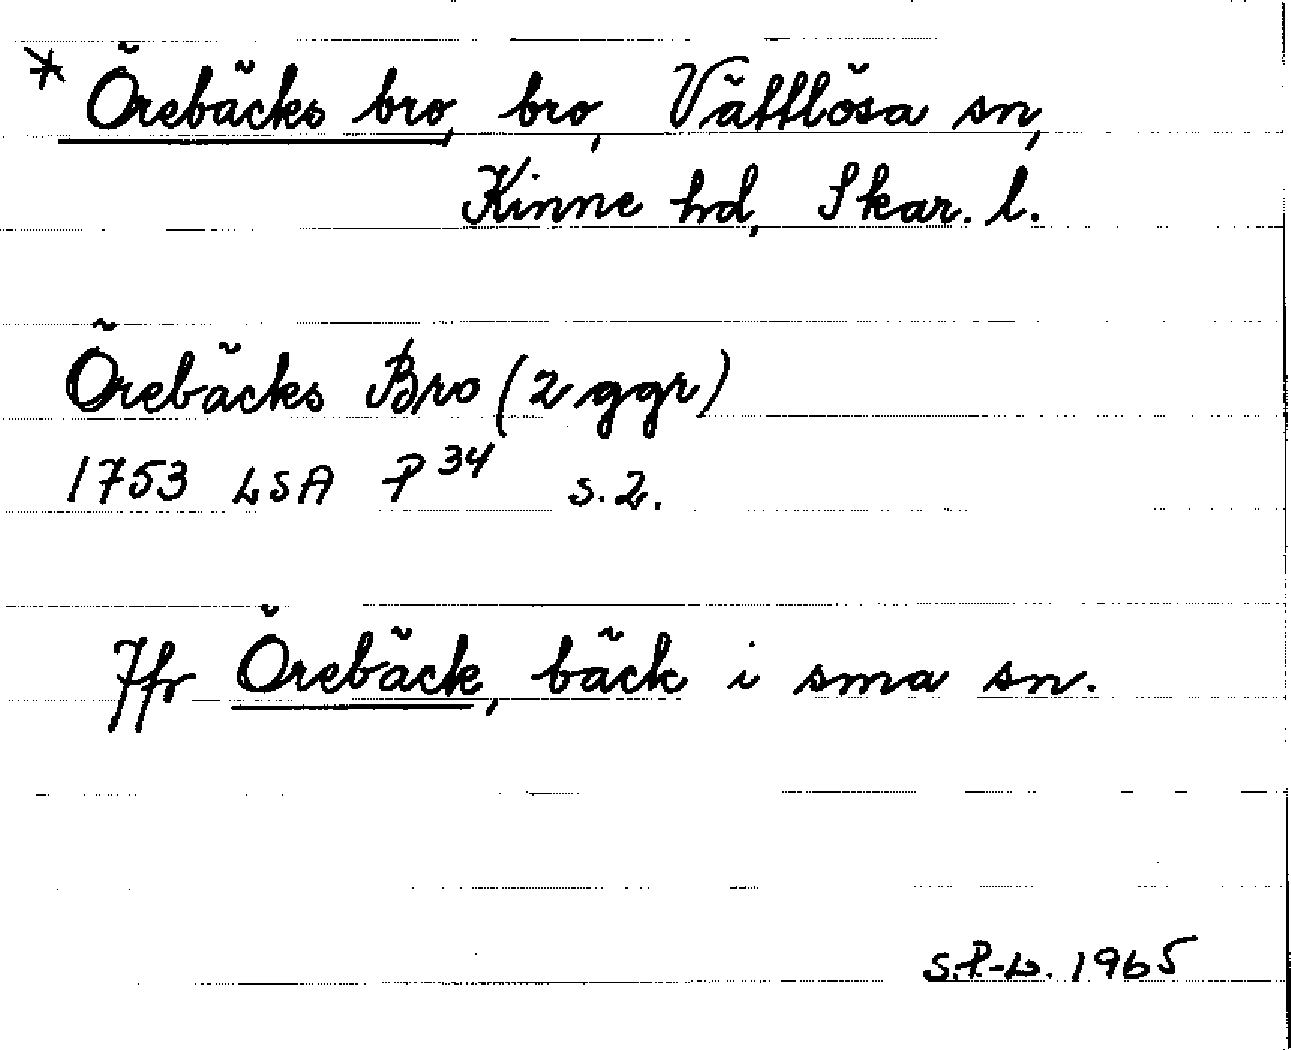 * Örebäcks bro, bro, Vättlösa sn,
Kinne hd, Skar. l.
Örebäcks Bro (2 ggr)
1753 LSA P 34 s. 2.
Jfr Örebäck, bäck i sma sn.
S.P-b. 1965